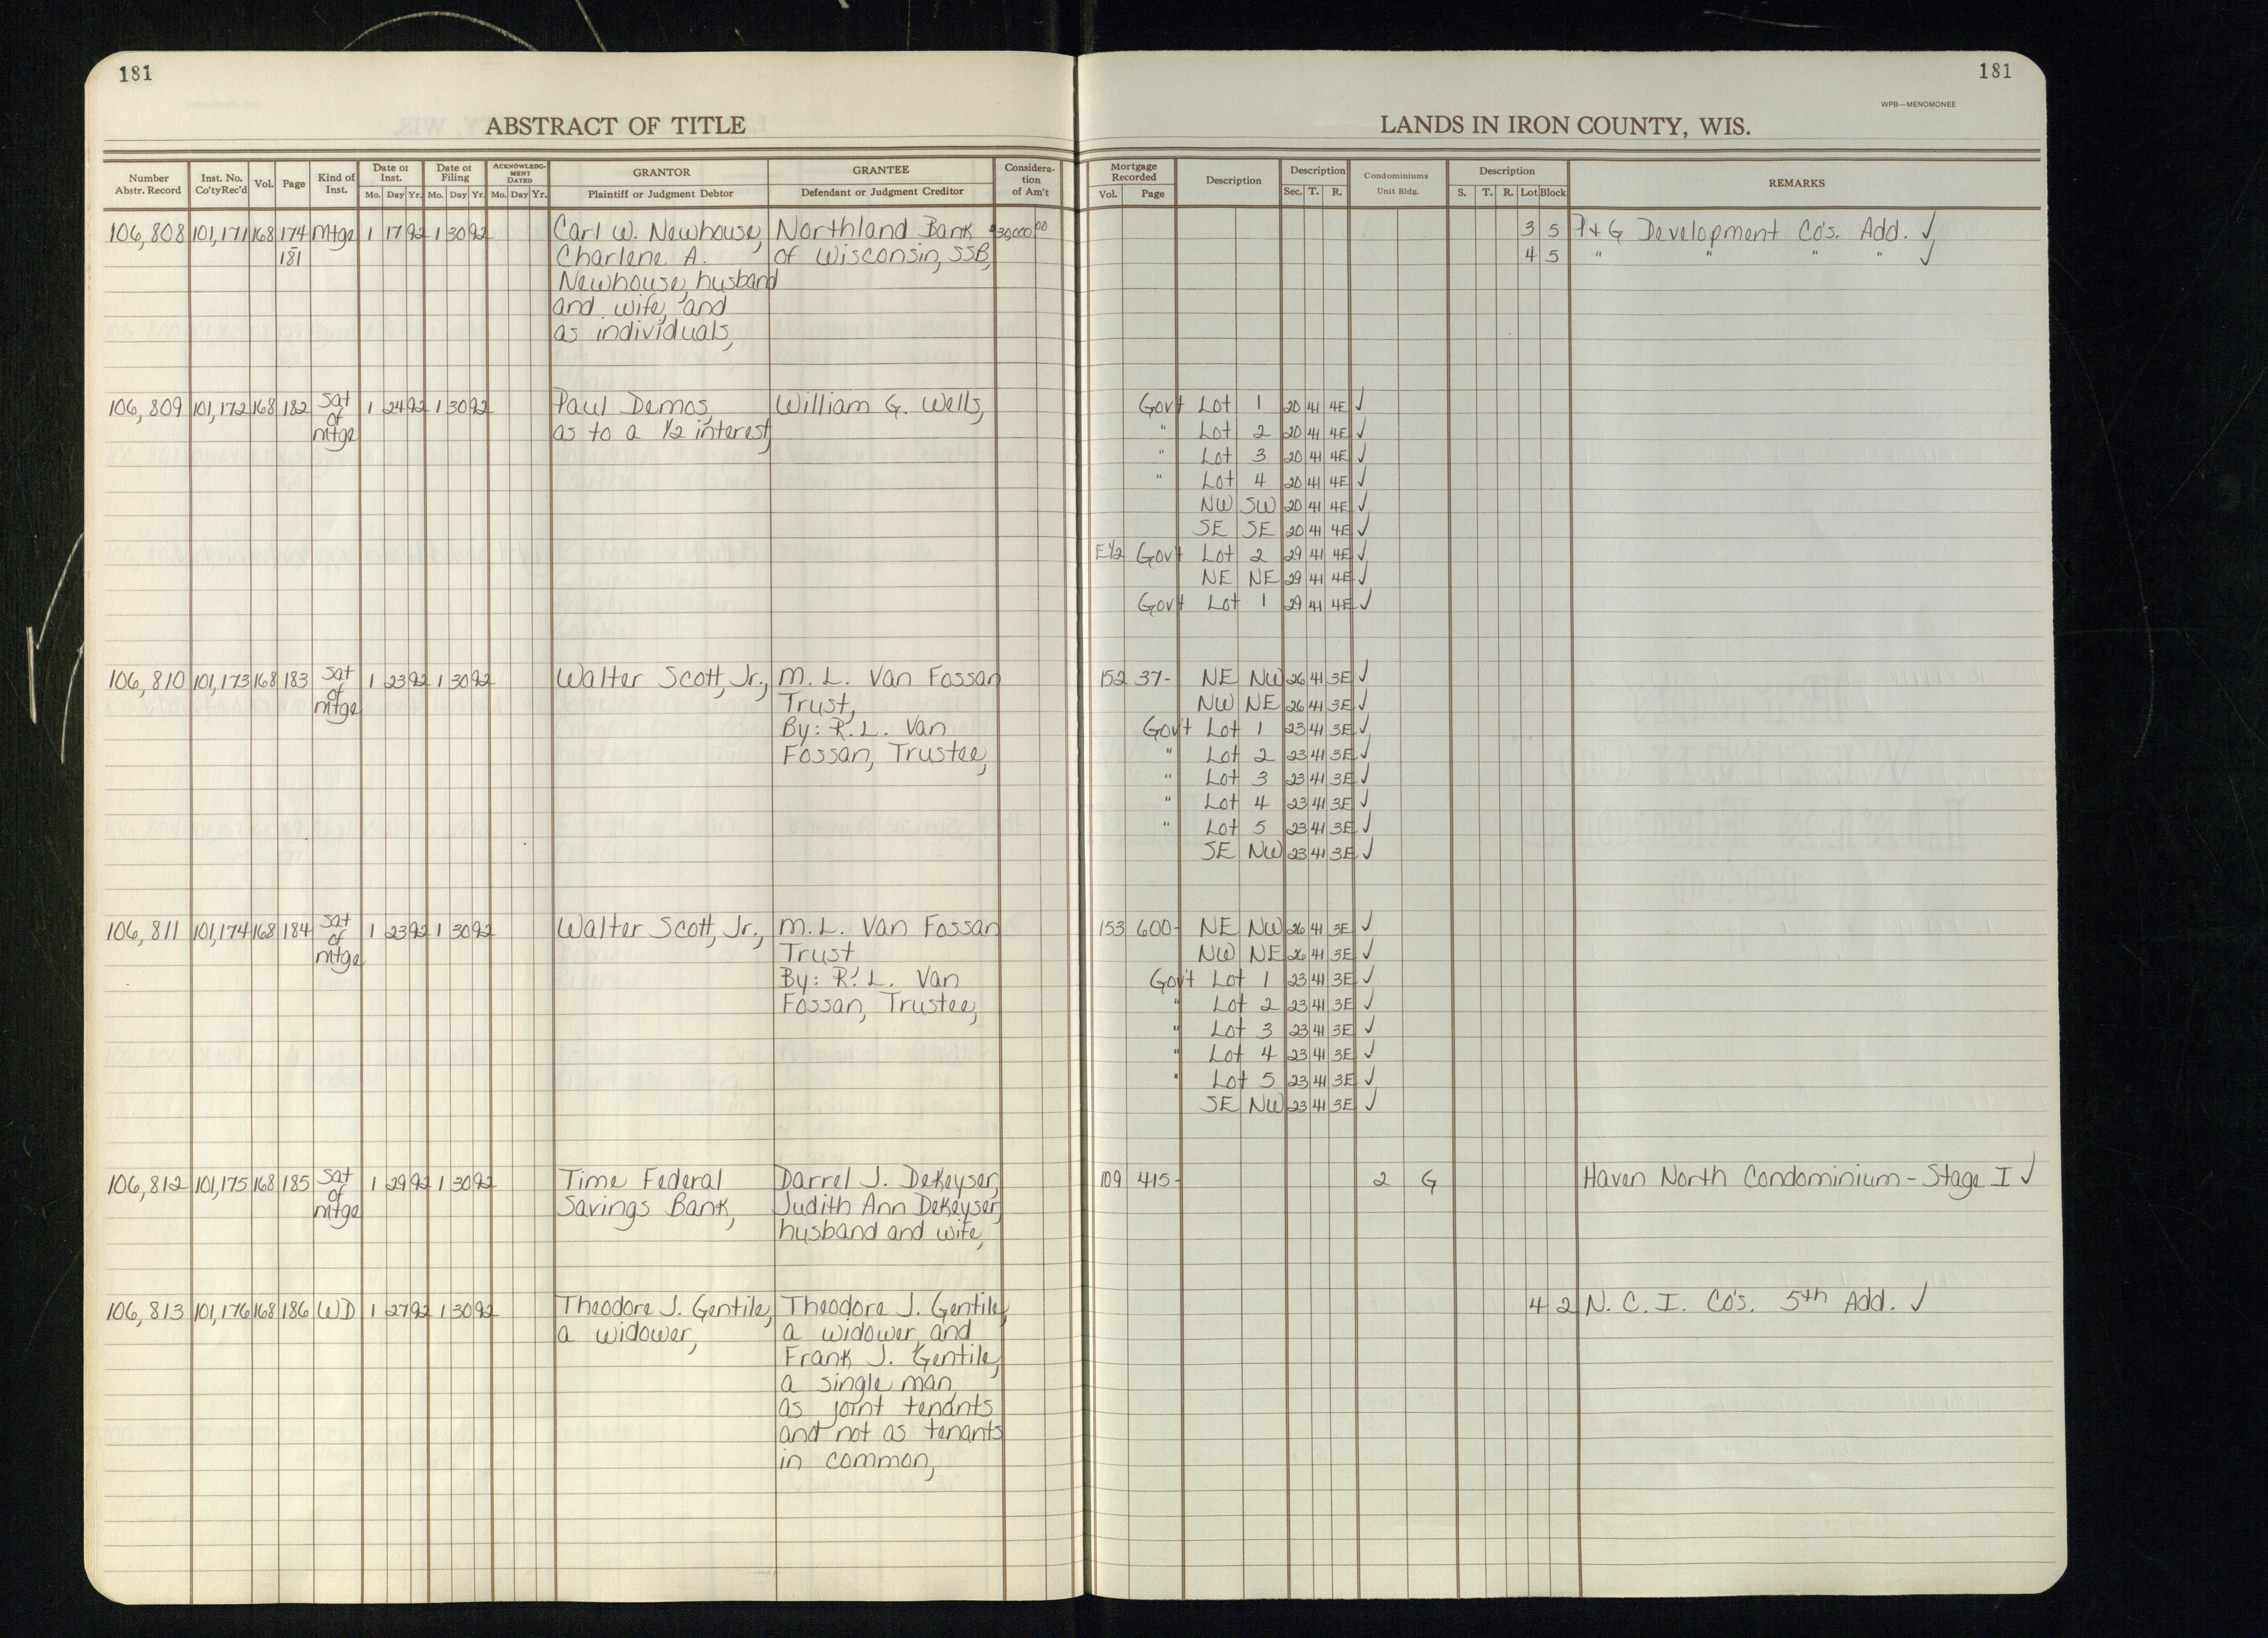 181
181
WPB—MENOMONEE
ABSTRACT OF TITLE
LANDS IN IRON COUNTY, WIS.
Number Abstr. Record Inst. No. Co'ty Rec'd Vol. Page Kind of Inst. Date of Inst. Mo. Day Yr. Date of Filing Mo. Day Yr. ACKNOWLEDGMENT DATED Mo. Day Yr. GRANTOR Plaintiff or Judgment Debtor GRANTEE Defendant or Judgment Creditor Consideration of Am't
Mortgage Recorded Vol. Page Description Description Sec. T. R. Condominiums Unit Bldg. Description S. T. R. Lot Block REMARKS
106,808 101,171 168 174 Mtge 1 17 92 1 30 92 Carl W. Newhouse, Northland Bank $30,000 00 3 5 P+G Development Co's. Add. ✓
- 181 Charlene A. of Wisconsin, SSB, 4 5 " " " " ✓
Newhouse, husband
and wife, and
as individuals,
106,809 101,172 168 182 Sat of mtge 1 24 92 1 30 92 Paul Demos, William G. Wells, Gov't Lot 1 20 41 4E ✓
as to a 1/2 interest " Lot 2 20 41 4E ✓
" Lot 3 20 41 4E ✓
" Lot 4 20 41 4E ✓
NW SW 20 41 4E ✓
SE SE 20 41 4E ✓
E1/2 Gov't Lot 2 29 41 4E ✓
NE NE 29 41 4E ✓
Gov't Lot 1 29 41 4E ✓
106,810 101,173 168 183 Sat of mtge 1 23 92 1 30 92 Walter Scott, Jr., M. L. Van Fossan 152 37- NE NW 26 41 3E ✓
Trust, NW NE 26 41 3E ✓
By: R. L. Van Gov't Lot 1 23 41 3E ✓
Fossan, Trustee, " Lot 2 23 41 3E ✓
" Lot 3 23 41 3E ✓
" Lot 4 23 41 3E ✓
" Lot 5 23 41 3E ✓
SE NW 23 41 3E ✓
106,811 101,174 168 184 Sat of mtge 1 23 92 1 30 92 Walter Scott, Jr., M. L. Van Fossan 153 600- NE NW 26 41 3E ✓
Trust NW NE 26 41 3E ✓
By: R. L. Van Gov't Lot 1 23 41 3E ✓
Fossan, Trustee, " Lot 2 23 41 3E ✓
" Lot 3 23 41 3E ✓
" Lot 4 23 41 3E ✓
" Lot 5 23 41 3E ✓
SE NW 23 41 3E ✓
106,812 101,175 168 185 Sat of mtge 1 29 92 1 30 92 Time Federal Darrel J. DeKeyser, 109 415- 2 G Haven North Condominium - Stage I ✓
Savings Bank, Judith Ann DeKeyser,
husband and wife,
106,813 101,176 168 186 WD 1 27 92 1 30 92 Theodore J. Gentile, Theodore J. Gentile, 4 2 N. C. I. Co's. 5th Add. ✓
a widower, a widower, and
Frank J. Gentile,
a single man,
as joint tenants
and not as tenants
in common,